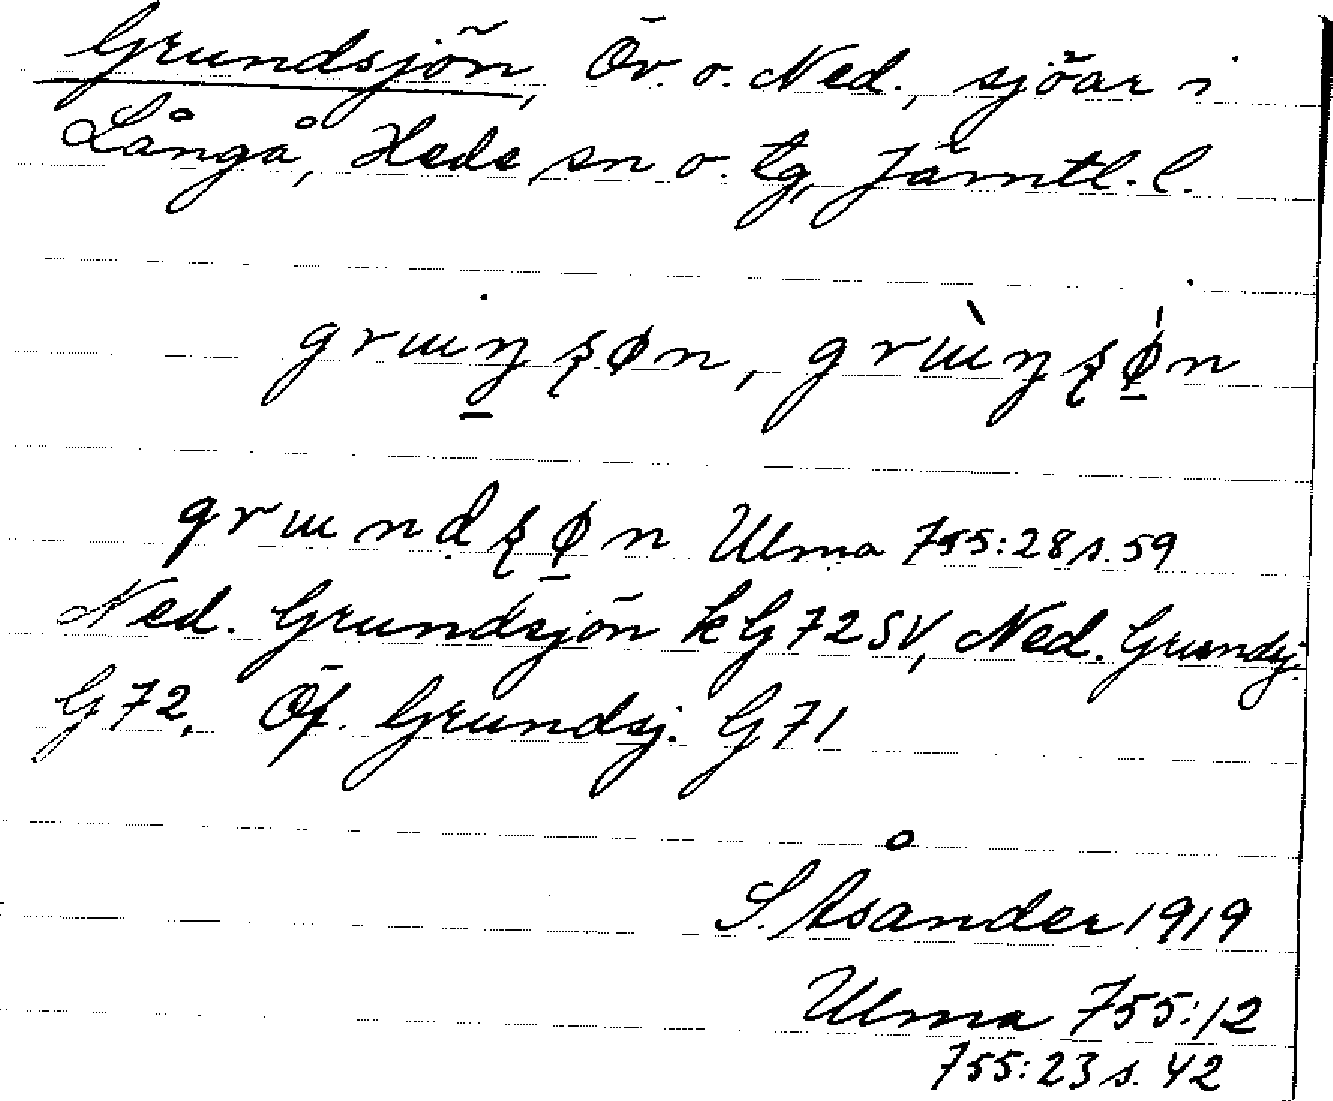 Grundsjön, Öv. o. Ned., sjöar i
Långå, Hede sn o. tg, Jämtl. l.
Ulma 755:28 s. 59
Ned. Grundsjön kG72SV, Ned. Grundsj.
G72. Öf. Grundsj. G71
S. Åsander 1919
Ulma 755:12
755:23 s. 42